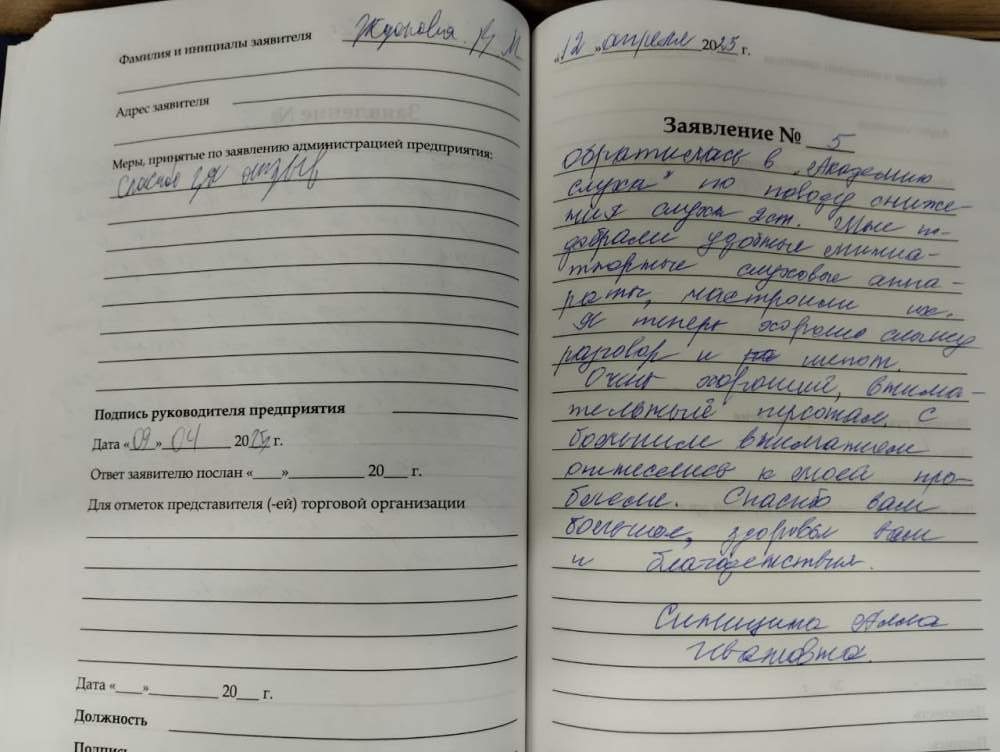 Фамилия и инициалы заявителя
Адрес заявителя
Меры, принятые по заявлению администрацией предприятия:
спасибо за отзыв
Подпись руководителя предприятия
Дата «09» 04 2025 г.
Ответ заявителю послан «___»__________ 20___ г.
Для отметок представителя (-ей) торговой организации
Дата «___»_________ 20___ г.
Должность
Подпись
«12» апреля 2025 г.
Заявление № 5
Обратилась в „Академию
слуха" по поводу сниже-
ния слуха 2 ст. Мне по-
добрали удобные миниа-
тюрные слуховые аппа-
раты, настроили их.
Я теперь хорошо слышу
разговор и шепот.
Очень хороший, внима-
тельный персонал. С
большим вниманием
отнеслись к моей про-
блеме. Спасибо вам
большое, здоровья вам
и благоденствия.
Синицина Алла
Ивановна.